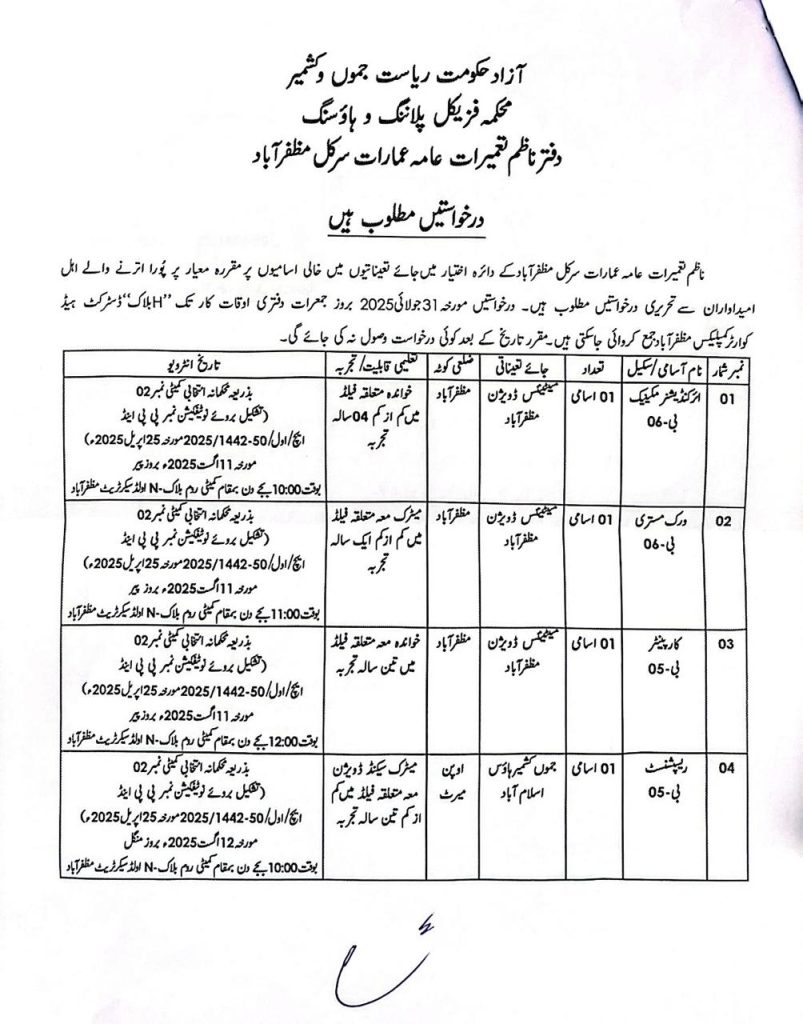 آزاد حکومت ریاست جموں و کشمیر
محکمہ فزیکل پلاننگ و ہاؤسنگ
دفتر ناظم تعمیرات عامہ عمارات سرکل مظفرآباد
درخواستیں مطلوب ہیں
ناظم تعمیرات عامہ عمارات سرکل مظفرآباد کے دائرہ اختیار میں جائے تعیناتیوں میں خالی اسامیوں پر مقررہ معیار پر پُورا اترنے والے اہل
امیدواران سے تحریری درخواستیں مطلوب ہیں۔ درخواستیں مورخہ 31 جولائی 2025 بروز جمعرات دفتری اوقات کار تک "H بلاک" ڈسٹرکٹ ہیڈ
کوارٹر کمپلیکس مظفرآباد جمع کروائی جاسکتی ہیں۔ مقرر تاریخ کے بعد کوئی درخواست وصول نہ کی جائے گی۔
نمبر شمار نام آسامی/سکیل تعداد جائے تعیناتی ضلعی کوٹہ تعلیمی قابلیت/تجربہ تاریخ انٹرویو
01 ائرکنڈیشنر مکینیک 01 اسامی مینٹینس ڈویژن مظفرآباد خواندہ متعلقہ فیلڈ بذریعہ محکمانہ انتخابی کمیٹی نمبر 02
بی-06 مظفرآباد میں کم از کم 04 سالہ (تشکیل بروئے نوٹیفکیشن نمبر پی پی اینڈ
تجربہ ایچ/اول/50-1442/2025 مورخہ 25 اپریل 2025ء)
مورخہ 11 اگست 2025ء بروز پیر
بوقت 10:00 بجے دن بمقام کمیٹی روم بلاک-N اولڈ سیکرٹریٹ مظفرآباد
02 ورک مستری 01 اسامی مینٹینس ڈویژن مظفرآباد میٹرک معہ متعلقہ فیلڈ بذریعہ محکمانہ انتخابی کمیٹی نمبر 02
بی-06 مظفرآباد میں کم از کم ایک سالہ (تشکیل بروئے نوٹیفکیشن نمبر پی پی اینڈ
تجربہ ایچ/اول/50-1442/2025 مورخہ 25 اپریل 2025ء)
مورخہ 11 اگست 2025ء بروز پیر
بوقت 11:00 بجے دن بمقام کمیٹی روم بلاک-N اولڈ سیکرٹریٹ مظفرآباد
03 کارپینٹر 01 اسامی مینٹینس ڈویژن مظفرآباد خواندہ معہ متعلقہ فیلڈ بذریعہ محکمانہ انتخابی کمیٹی نمبر 02
بی-05 مظفرآباد میں تین سالہ تجربہ (تشکیل بروئے نوٹیفکیشن نمبر پی پی اینڈ
ایچ/اول/50-1442/2025 مورخہ 25 اپریل 2025ء)
مورخہ 11 اگست 2025ء بروز پیر
بوقت 12:00 بجے دن بمقام کمیٹی روم بلاک-N اولڈ سیکرٹریٹ مظفرآباد
04 ریسپشنسٹ 01 اسامی جموں کشمیر ہاؤس اوپن میٹرک سیکنڈ ڈویژن بذریعہ محکمانہ انتخابی کمیٹی نمبر 02
بی-05 اسلام آباد میرٹ معہ متعلقہ فیلڈ میں کم (تشکیل بروئے نوٹیفکیشن نمبر پی پی اینڈ
از کم تین سالہ تجربہ ایچ/اول/50-1442/2025 مورخہ 25 اپریل 2025ء)
مورخہ 12 اگست 2025ء بروز منگل
بوقت 10:00 بجے دن بمقام کمیٹی روم بلاک-N اولڈ سیکرٹریٹ مظفرآباد